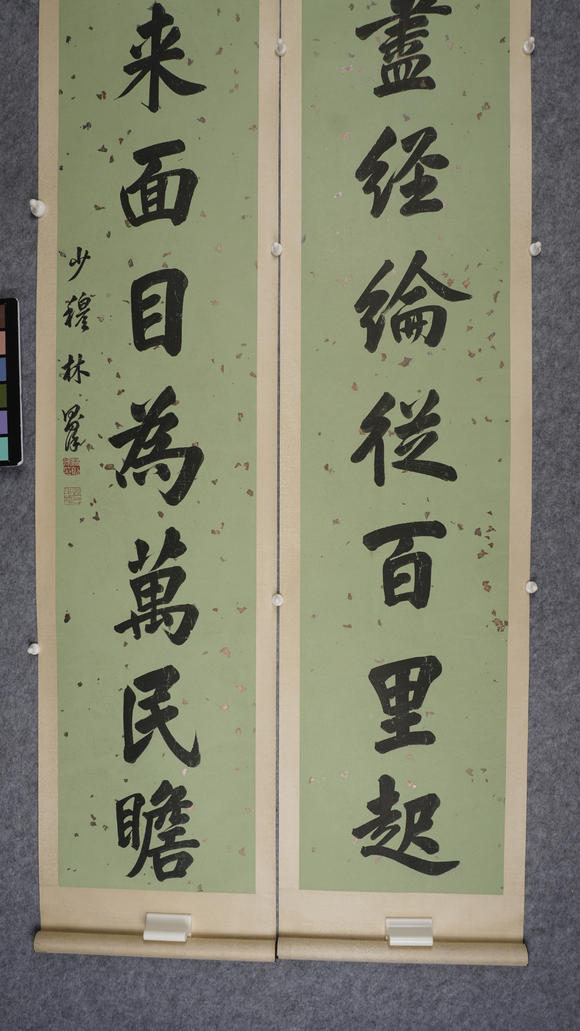 盡经綸從百里起
来面目為萬民瞻
少穆林